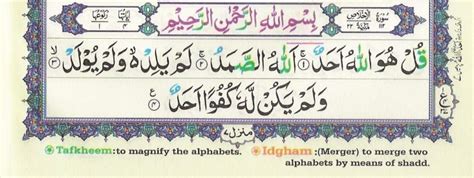 سُوْرَةُ الْاِخْلَاصِ
بِسْمِ اللّٰهِ الرَّحْمٰنِ الرَّحِيْمِ
قُلْ هُوَ اللّٰهُ اَحَدٌ ۚ﴿۱﴾ اَللّٰهُ الصَّمَدُ ۚ﴿۲﴾ لَمْ يَلِدْ ۙ وَلَمْ يُوْلَدْ ۙ﴿۳﴾
وَلَمْ يَكُنْ لَّهٗ كُفُوًا اَحَدٌ ﴿۴﴾
منزل ۷
Tafkheem:to magnify the alphabets. Idgham:(Merger) to merge two
alphabets by means of shadd.